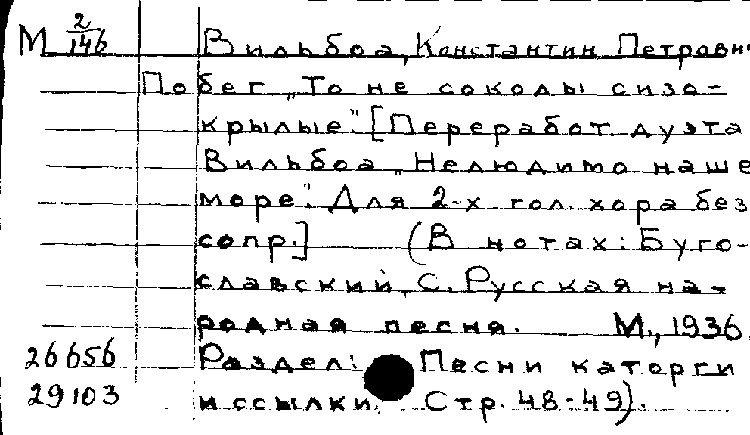 М 2/146 Вильбоа, Константин Петрови
Побег „То не соколы сизо-
крылые". [Переработ. дуэта
Вильбоа „Нелюдимо наше
море". Для 2-х гол. хора без
сопр.] (В нотах: Буго-
славский, С. Русская на-
родная песня. М., 1936.
26656 Раздел: Песни каторги
29103 и ссылки. Стр. 48-49).